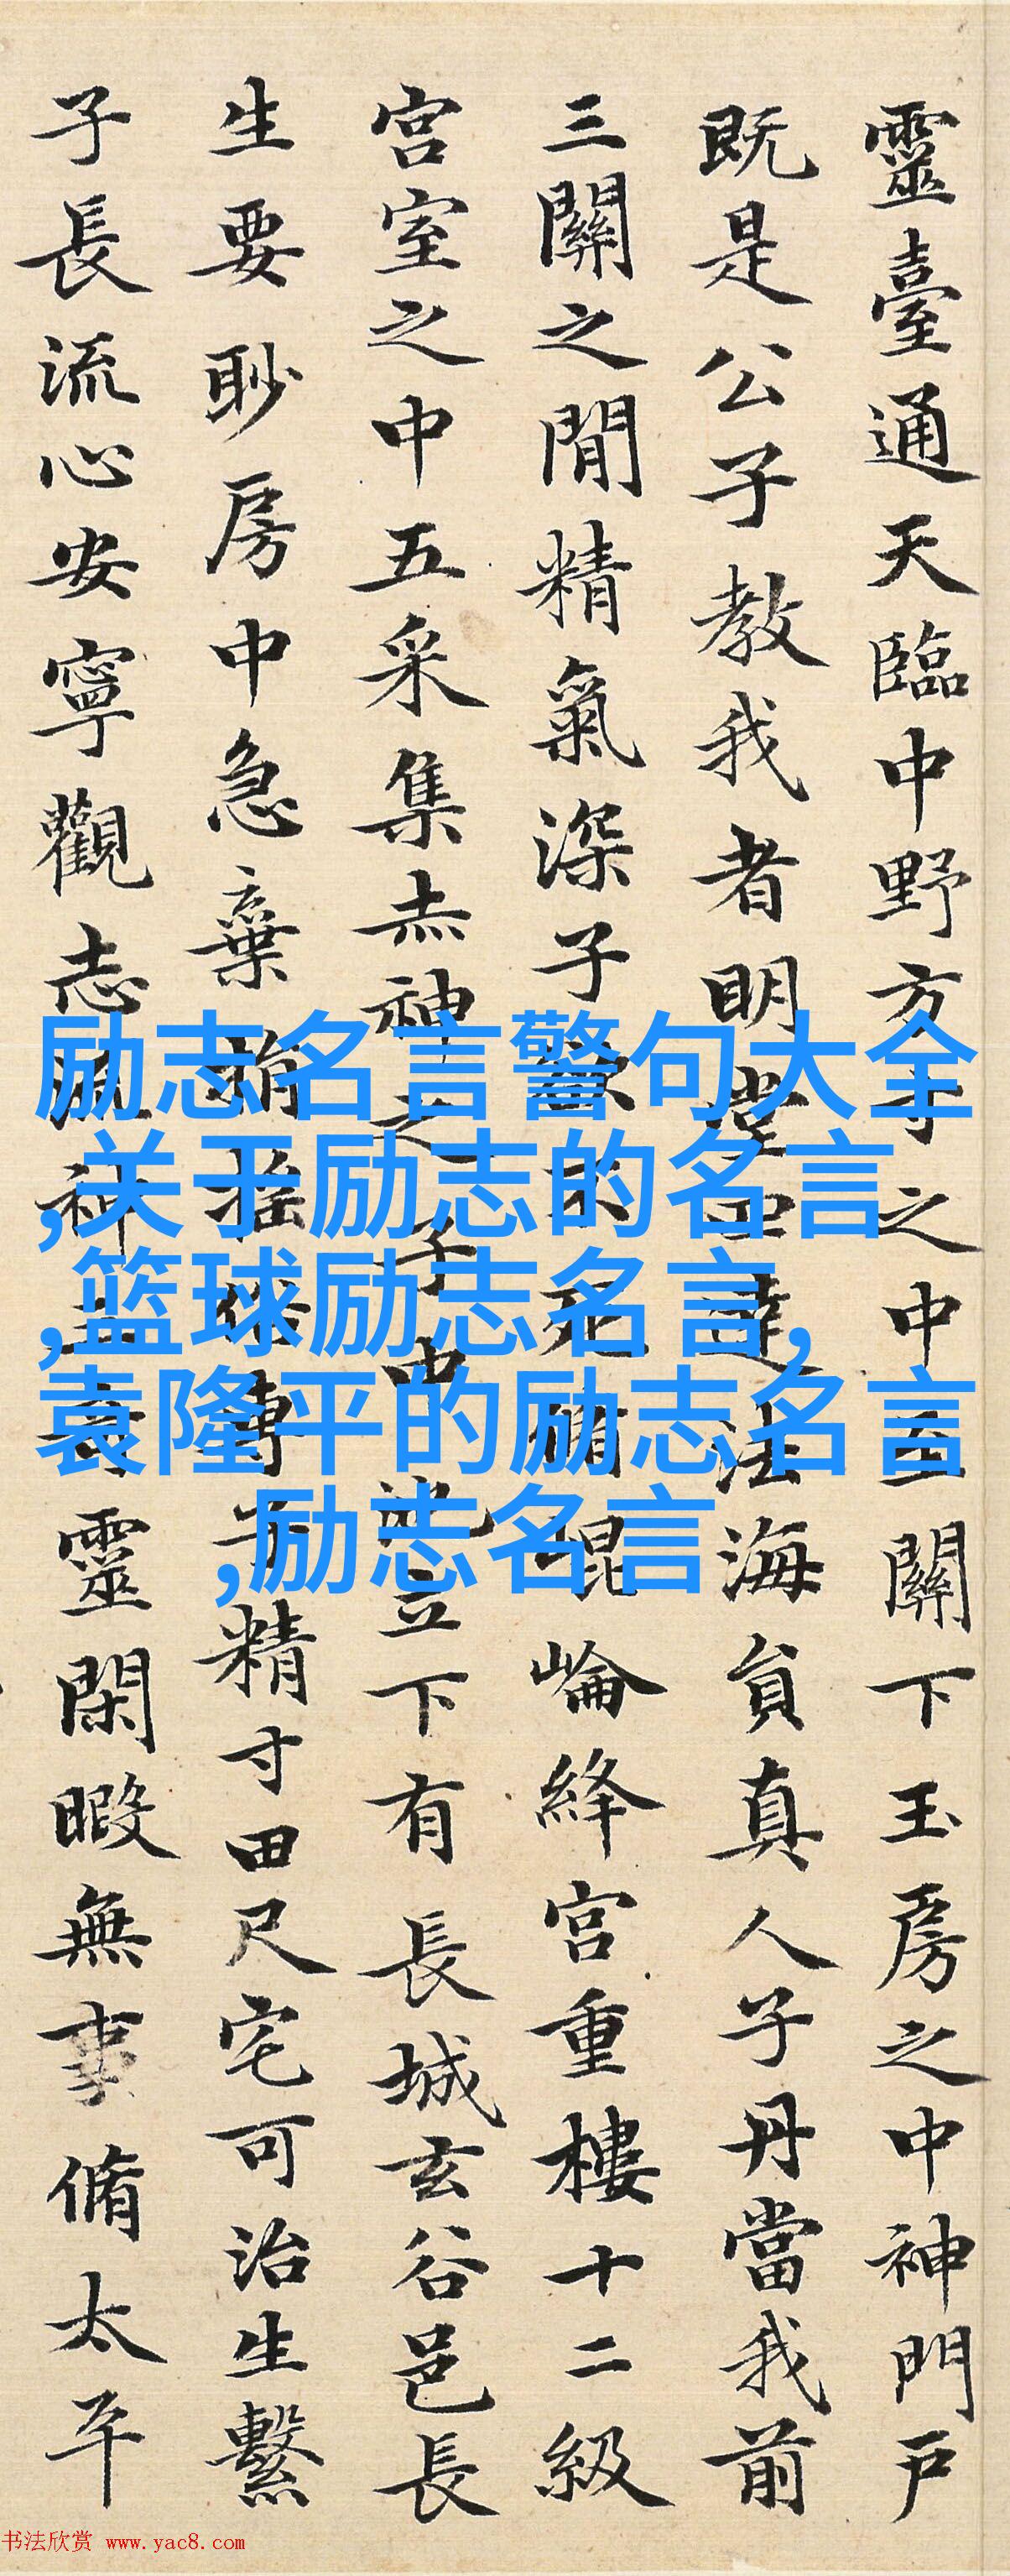 靈臺通天臨中野方寸之中至關下玉房之中神門戶
既是公子教我者明堂四達法海負真人子丹當我前
三關之間精氣深子欲不死脩崑崘絳宮重樓十二級
宮室之中五采集赤神之子中池立下有長城玄谷邑長
生要眇房中急棄捐淫俗專子精寸田尺宅可治生繫
子長流心安寧觀志流神三奇靈閑暇無事脩太平
励志名言警句大全
,关于励志的名言
,篮球励志名言,
袁隆平的励志名言
,励志名言
书法欣赏 www.yac8.com